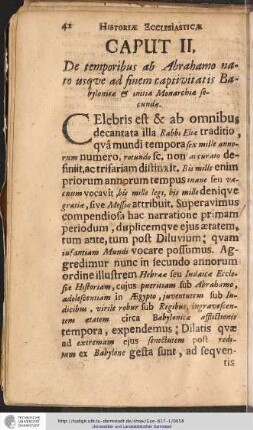 42 HISTORIÆ ECCLESIASTICÆ
CAPUT II.
De temporibus ab Abrahamo na-
to usqve ad finem captivitatis Ba-
bylonicæ & initia Monarchiæ se-
cundæ.
CElebris est & ab omnibus
decantata illa Rabbi Eliæ traditio,
qvâ mundi tempora sex mille anno-
rum numero, rotundo sc. non accurato de-
finit, ac trifariam distinxit. Bis mille enim
priorum annorum tempus inane seu va-
cuum vocavit, bis mille legi, bis mille deniqve
gratiæ, sive Messiæ attribuit. Superavimus
compendiosa hac narratione primam
periodum, duplicemqve ejus ætatem,
tum ante, tum post Diluvium; qvam
infantiam Mundi vocare possumus. Ag-
gredimur nunc in secundo annorum
ordine illustrem Hebrææ seu Judaicæ Eccle-
siæ Historiam, cujus pueritiam sub Abrahamo,
adolescentiam in Ægypto, juventutem sub Ju-
dicibus, virile robur sub Regibus, ingravescen-
tem ætatem circa Babylonicæ afflictionis
tempora, expendemus; Dilatis qvæ
ad extremam ejus senectutem post redi-
tum ex Babylone gesta sunt, ad seqven-
tis
TECHNISCHE UNIVERSITÄT DARMSTADT
Universitäts- und Landesbibliothek Darmstadt